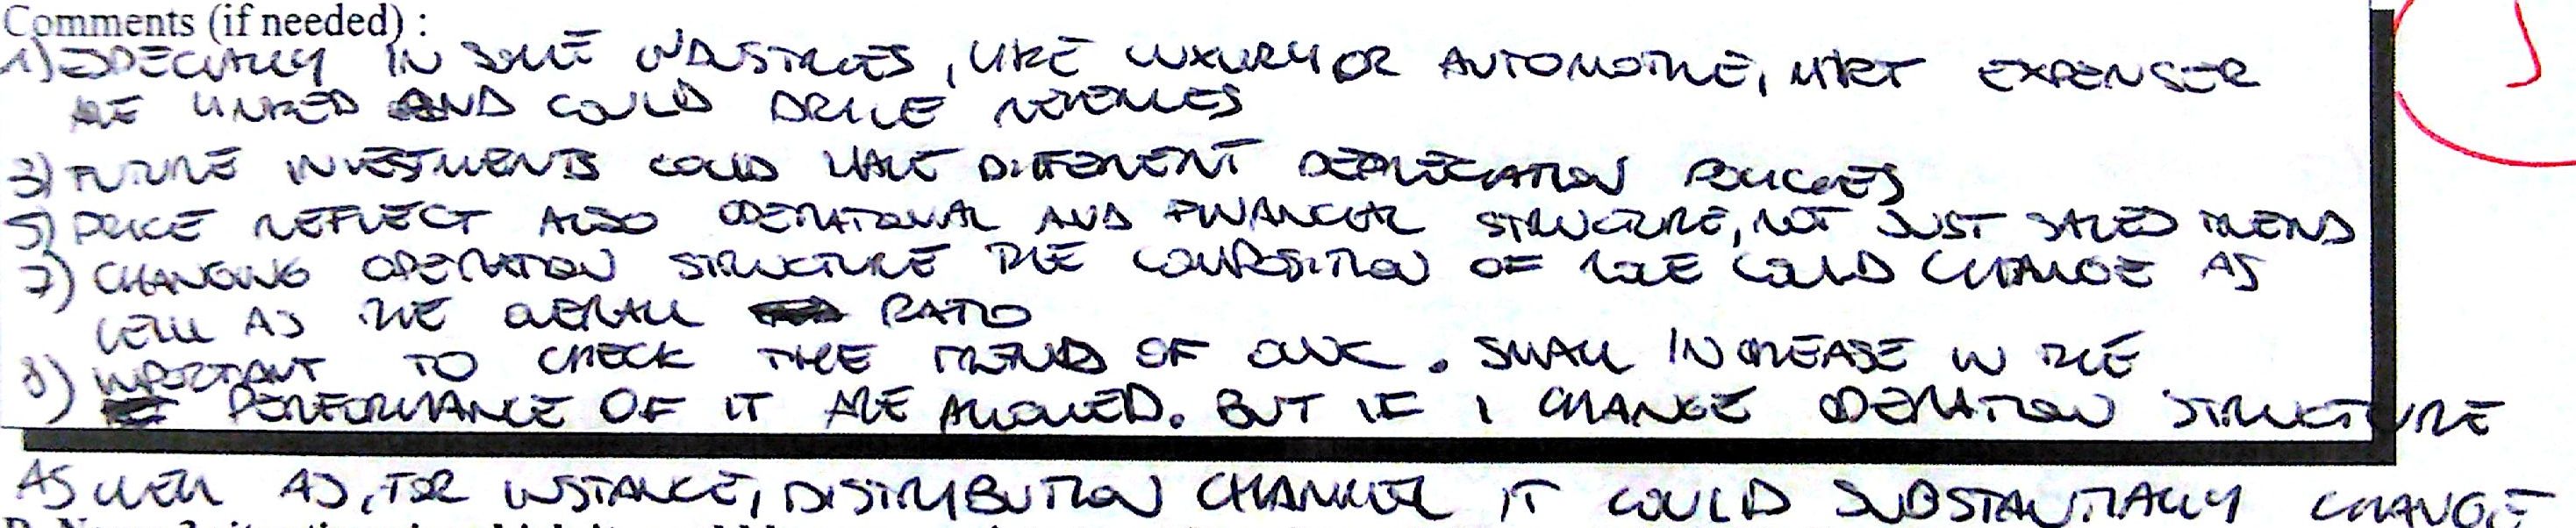 Comments (if needed) :
1) ESPECIALLY IN SOME INDUSTRIES, LIKE LUXURY OR AUTOMOTIVE, MKT EXPENSES
ARE LINKED AND COULD DRIVE REVENUES
3) FUTURE INVESTMENTS COULD HAVE DIFFERENT DEPRECIATION POLICIES
5) PRICE REFLECT ALSO OPERATIONAL AND FINANCIAL STRUCTURE, NOT JUST SALES TREND
7) CHANGING OPERATION STRUCTURE THE COMPOSITION OF COULD CHANGE AS
WELL AS THE OVERALL RATIO
8) IMPORTANT TO CHECK THE TREND OF . SMALL INCREASE IN THE
PERFORMANCE OF IT ARE ALLOWED. BUT IF I CHANGE OPERATION STRUCTURE
AS WELL AS, FOR INSTANCE, DISTRIBUTION CHANNEL IT COULD SUBSTANTIALLY CHANGE